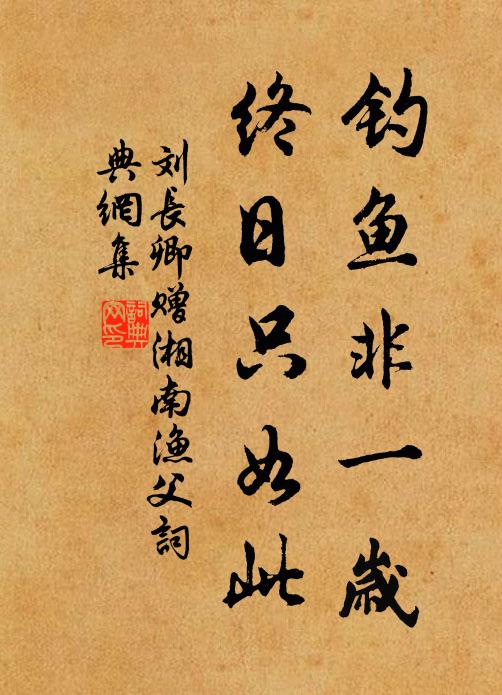 钓鱼非一岁
终日只如此
刘長卿赠湘南渔父詞
典網集
詞典
网印